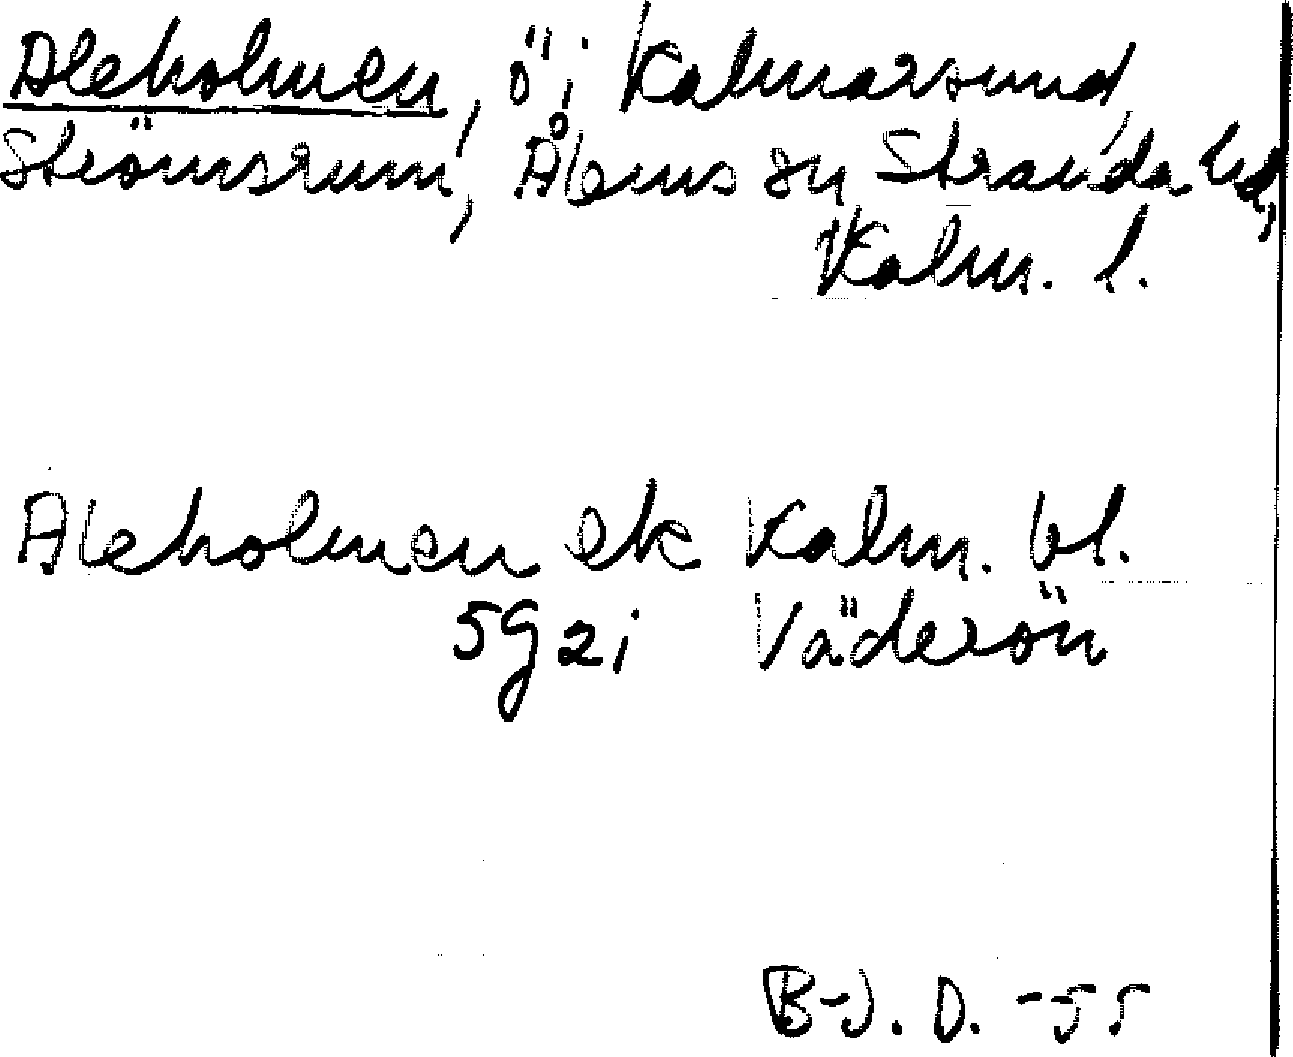 Aleholmen, ö i Kalmarsund,
Strömsrum, Ålems sn Stranda hd,
Kalm. l.
Aleholmen ek Kalm. bl.
5g2i Väderön
B-J. D. -55